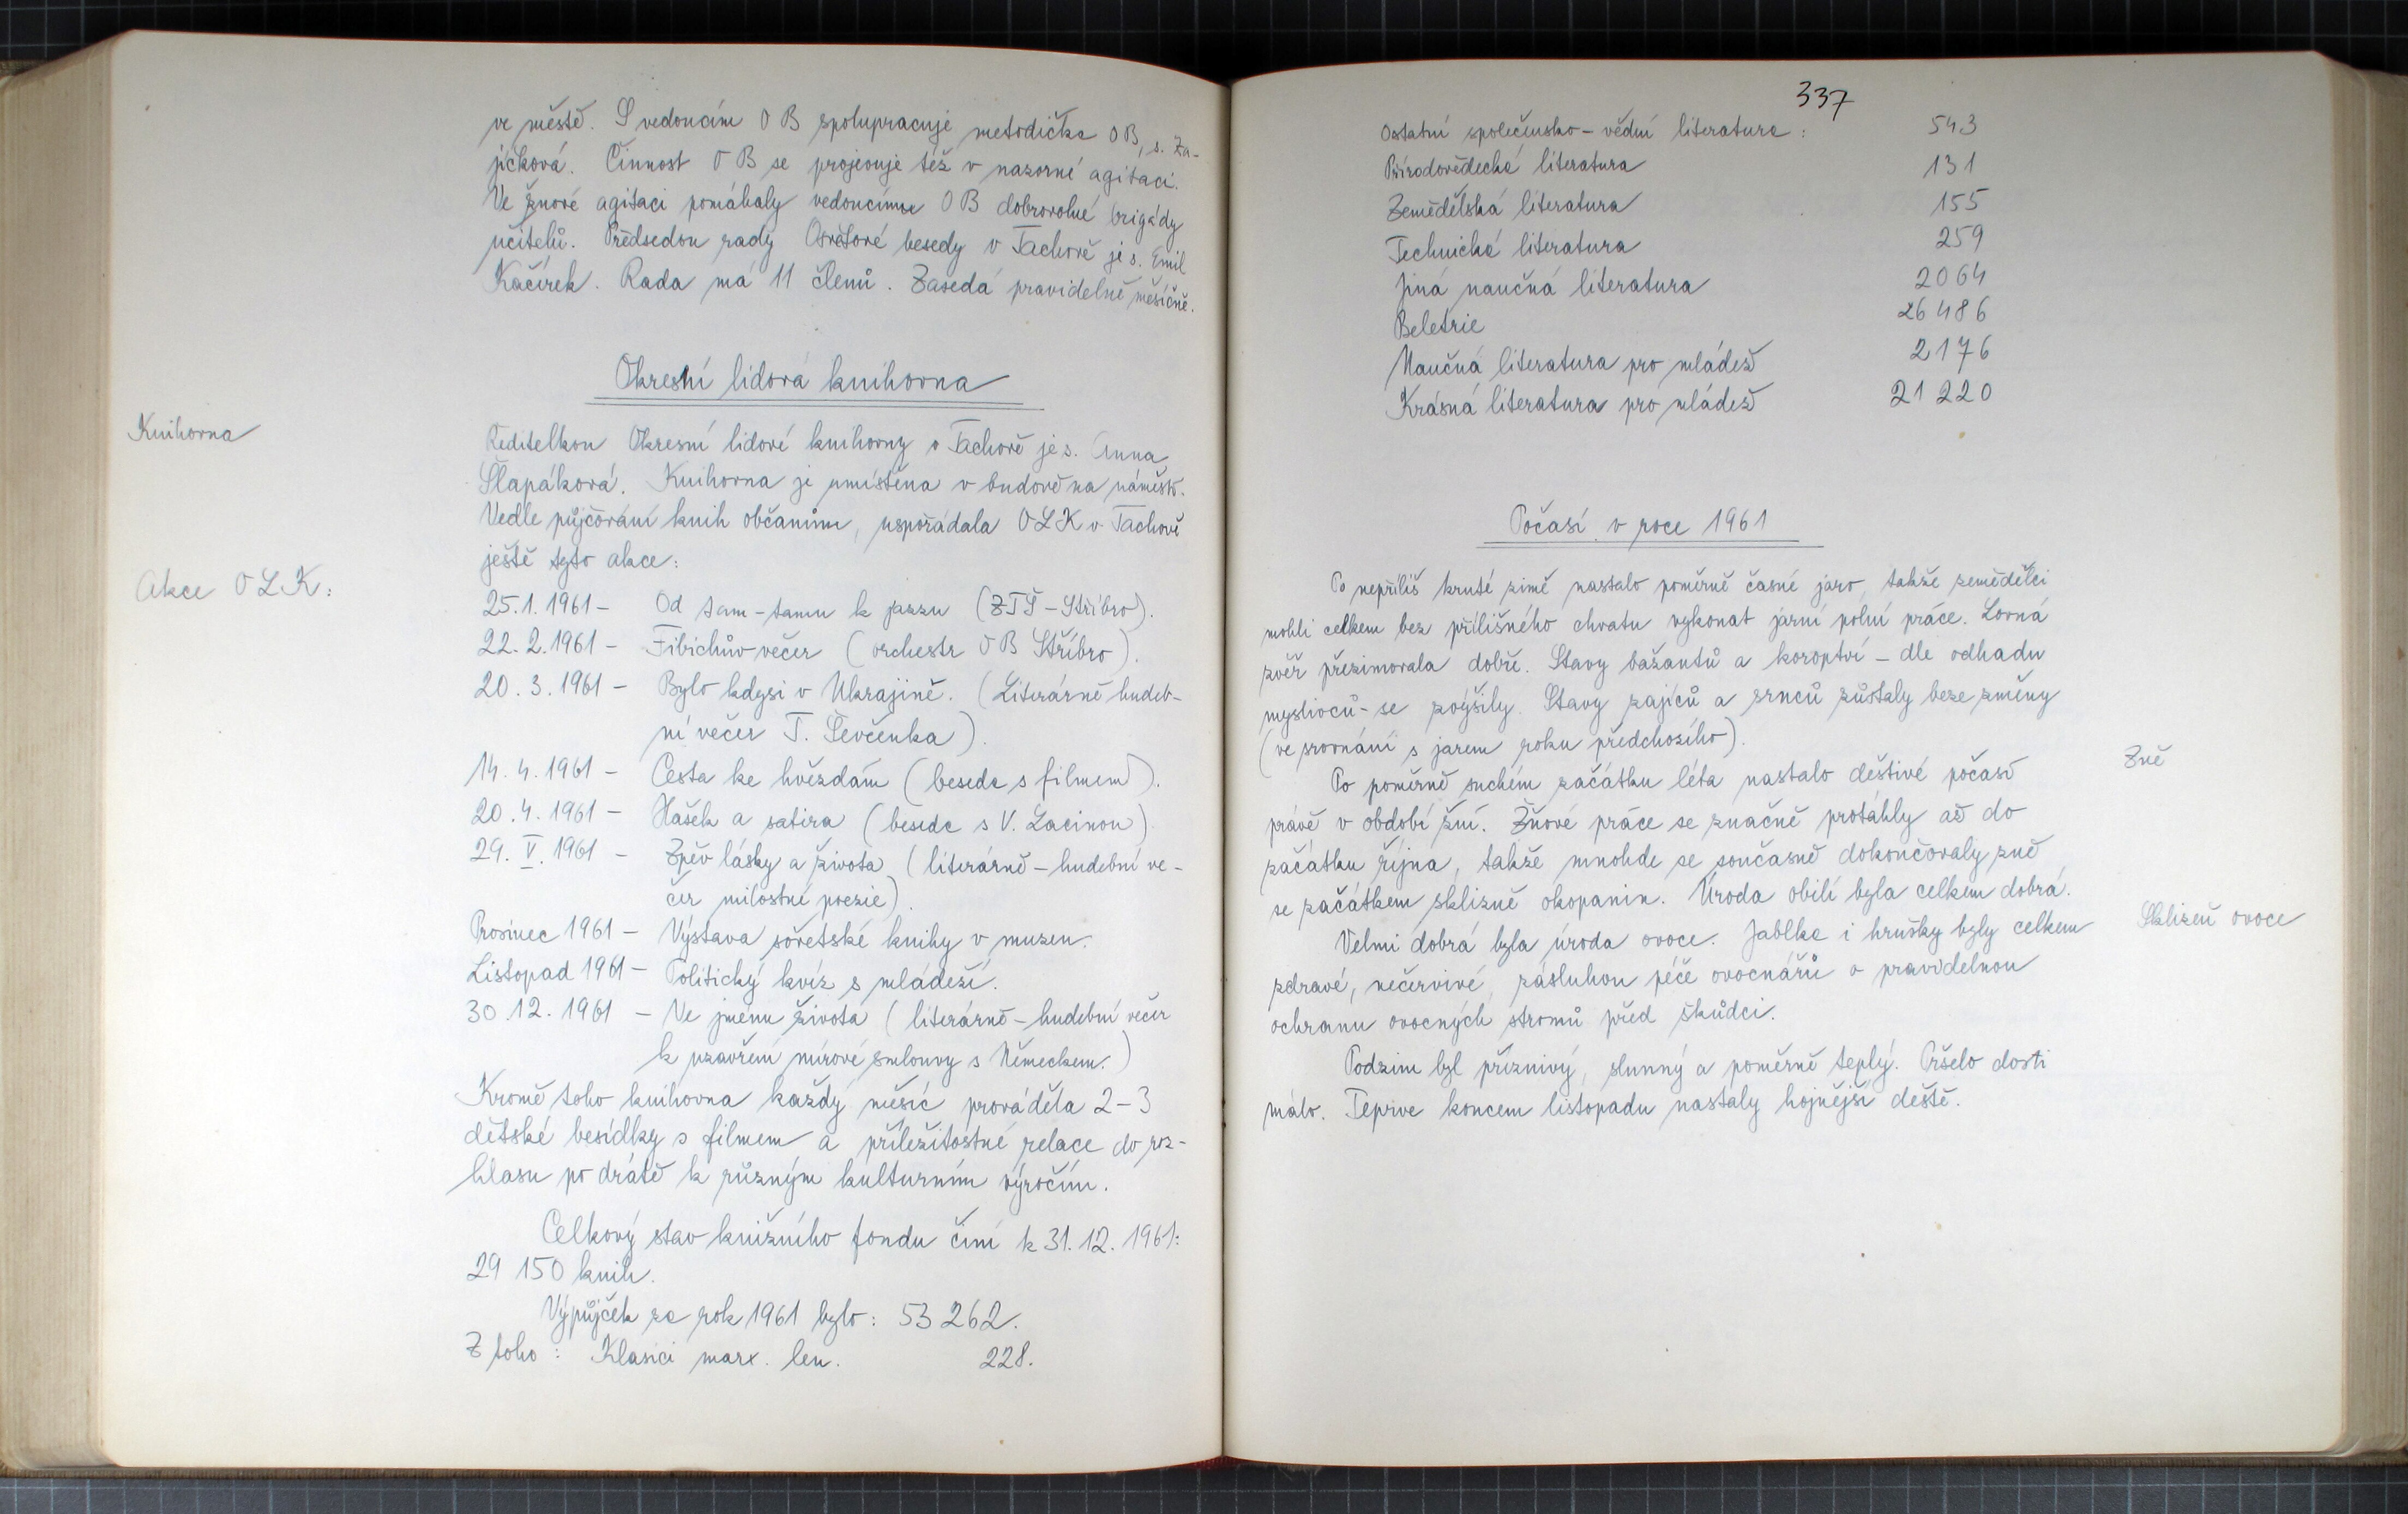 ve městě. S vedoucím OB spolupracuje metodička OB, s. Za-
jíčková. Činnost OB se projevuje též v nazorné agitaci.
Ve žňové agitaci pomáhaly vedoucímu OB dobrovolné brigády
učitelů. Předsedou rady Osvětové besedy v Tachově je s. Emil
Kačírek. Rada má 11 členů. Zasedá pravidelně měsíčně.
Okresní lidová knihovna
Knihovna
Ředitelkou Okresní lidové knihovny v Tachově je s. Anna
Šlapáková. Knihovna je umístěna v budově na náměstí.
Vedle půjčování knih občanům, uspořádala OLK v Tachově
ještě tyto akce:
Akce OLK:
25.1.1961 – Od tam-tamu k jazzu (ZTŠ – Stříbro).
22.2.1961 – Fibichův večer (orchestr OB Stříbro).
20.3.1961 – Bylo kdysi v Ukrajině. (Literárně hudeb-
ní večer T. Ševčenka).
14.4.1961 – Cesta ke hvězdám (beseda s filmem).
20.4.1961 – Hašek a satira (beseda s V. Lacinou)
29. V. 1961 – Zpěv lásky a života (literárně – hudební ve-
čer milostné poezie).
Prosinec 1961 – Výstava sovětské knihy v muzeu.
Listopad 1961 – Politický kvíz s mládeží.
30.12.1961 – Ve jménu života (literárně – hudební večer
k uzavření mírové smlouvy s Německem.)
Kromě toho knihovna každý měsíc prováděla 2–3
dětské besídky s filmem a příležitostné relace do roz-
hlasu po drátě k různým kulturním výročím.
Celkový stav knižního fondu činí k 31.12.1961:
29 150 knih.
Výpůjček za rok 1961 bylo: 53 262.
Z toho: Klasici marx. len. 228.
337
Ostatní společensko – vědní literatura: 543
Přírodovědecká literatura 131
Zemědělská literatura 155
Technická literatura 259
Jiná naučná literatura 2064
Beletrie 26 486
Naučná literatura pro mládež 2176
Krásná literatura pro mládež 21 220
Počasí v roce 1961
Po nepříliš kruté zimě nastalo poměrně časné jaro, takže zemědělci
mohli celkem bez přílišného chvatu vykonat jarní polní práce. Lovná
zvěř přezimovala dobře. Stavy bažantů a koroptví – dle odhadu
myslivců – se zvýšily. Stavy zajíců a srnců zůstaly beze změny
(ve srovnání s jarem roku předchozího).
Žně
Po poměrně suchém začátku léta nastalo deštivé počasí
právě v období žní. Žňové práce se značně protáhly až do
začátku října, takže mnohde se současně dokončovaly žně
se začátkem sklizně okopanin. Úroda obilí byla celkem dobrá.
Sklizeň ovoce
Velmi dobrá byla úroda ovoce. Jablka i hrušky byly celkem
zdravé, nečervivé, zásluhou péče ovocnářů o pravidelnou
ochranu ovocných stromů před škůdci.
Podzim byl příznivý, slunný a poměrně teplý. Pršelo dosti
málo. Teprve koncem listopadu nastaly hojnější deště.